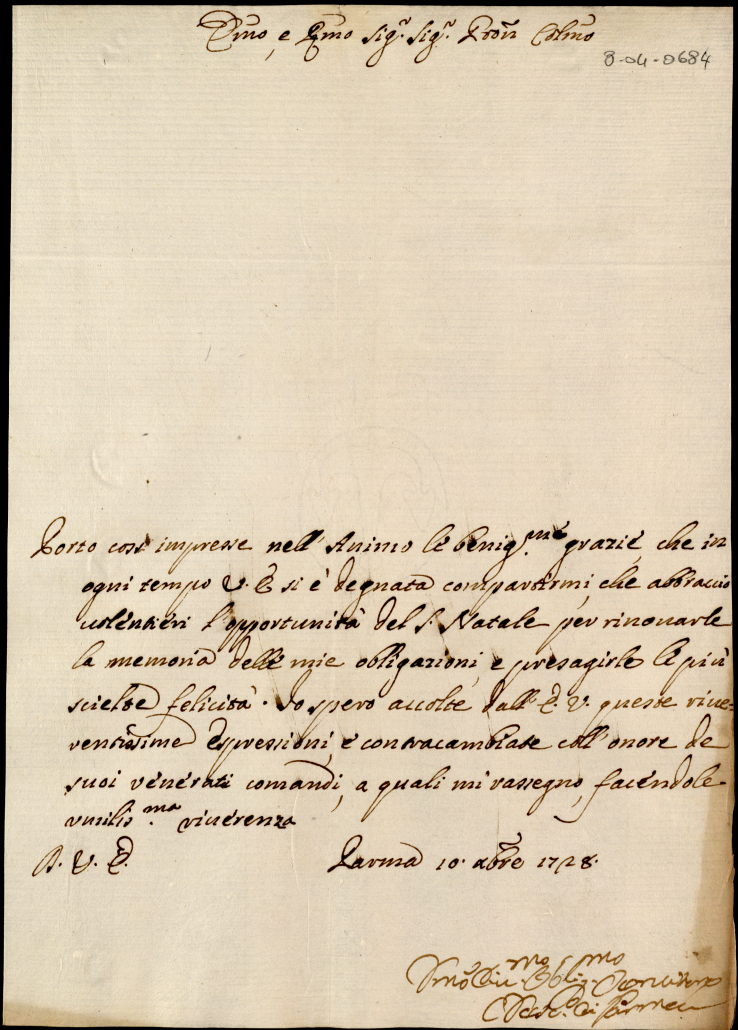 Emo, e Rmo Sig.r Sig.r Pron Colmo
8-04-0684
Porto così impresse nell'Animo le benig.me grazie, che in
ogni tempo V. E. si è degnata compartirmi, che abbraccio
volentieri l'opportunità del S. Natale per rinovarle
la memoria delle mie obligazioni, e presagirle le più
scielte felicità. Io spero accolte dall'E. V. queste rive-
rentissime espressioni, e contracambiate coll'onore de
suoi venerati comandi, a quali mi rassegno, facendole
umilis.ma riverenza
D. V. E. Parma 10. Xbre 1728.
Vmo Div.mo Oblig.mo Servitore
di Parma